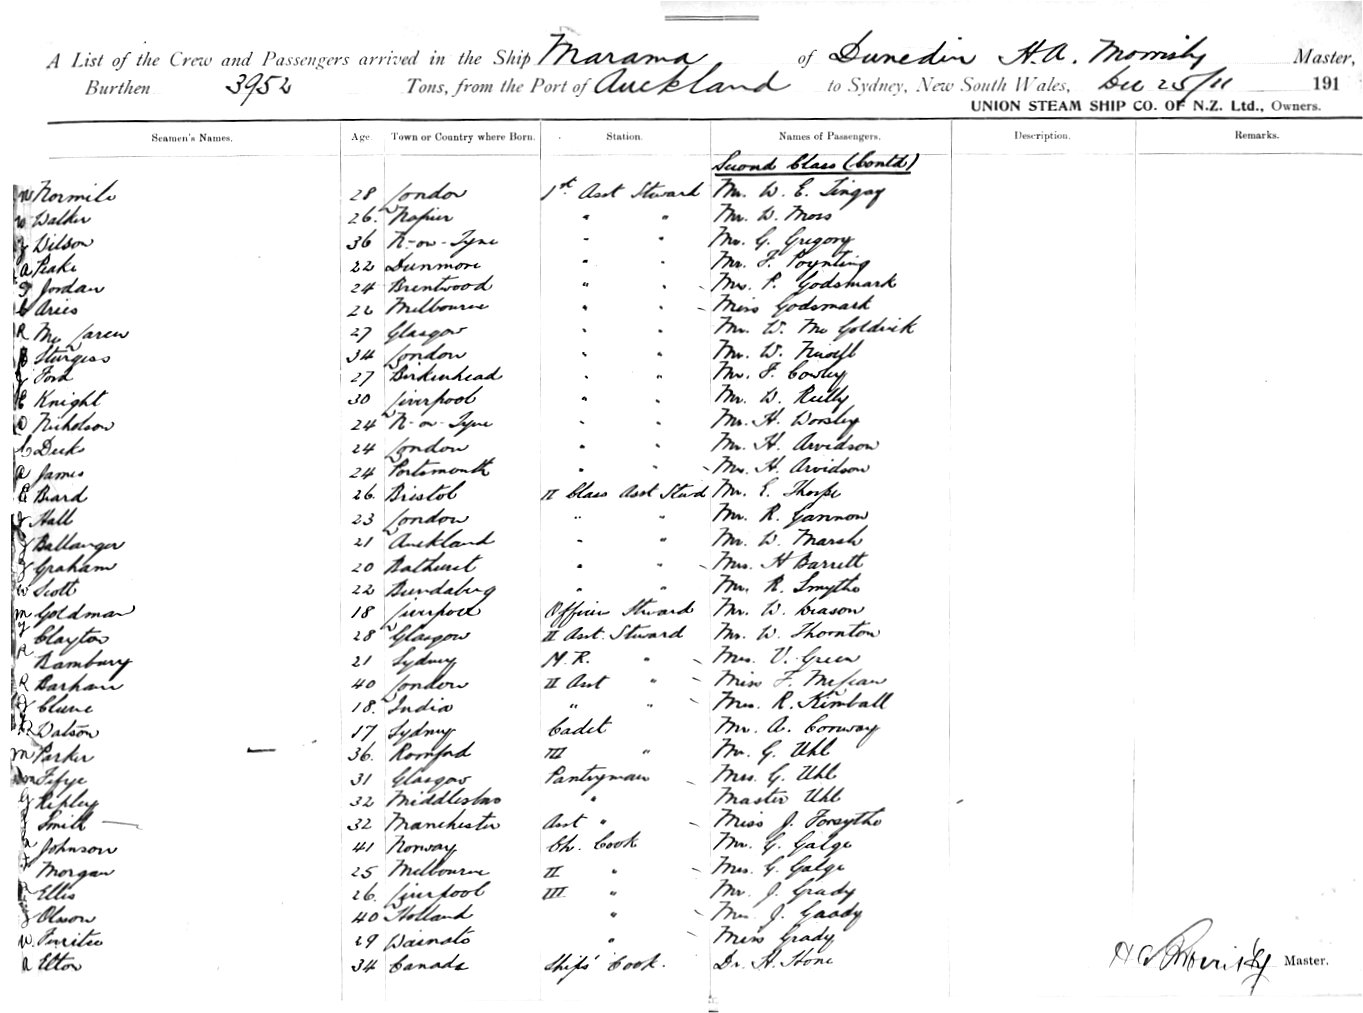 A List of the Crew and Passengers arrived in the Ship Marama of Dunedin H.A. Morrisby Master,
Burthen 3952 Tons, from the Port of Auckland to Sydney, New South Wales, Dec 25/11 191
UNION STEAM SHIP CO. OF N.Z. Ltd., Owners.
Seamen's Names. Age. Town or Country where Born. Station. Names of Passengers. Description. Remarks.
Second Class (Contd)
Normile 28 London 1st Asst Steward Mr. W. E. Tingay
W Walker 26. Napier " " Mr. W. Moss
J Wilson 36 N-on-Tyne " " Mr. G. Gregory
A Peake 22 Dunmore " " Mr. F. Poynting
J Jordan 24 Brentwood " " Mrs. P. Godsmark
C Aries 22 Melbourne " " Miss Godsmark
R McLaren 27 Glasgow " " Mr. W. McGoldrick
Sturgess 34 London " " Mr. W.
Ford 27 Birkenhead " " Mr. F. Cowley
E Knight 30 Liverpool " " Mr. W. Reilly
D Nicholson 24 N-on-Tyne " " Mr. H. Worsley
C Deeks 24 London " " Mr. H. Arvidson
A James 24 Portsmouth " " Mrs. H. Arvidson
E Beard 26. Bristol II Class Asst Stwd Mr. E. Thorpe
J Hall 23 London " " Mr. R. Gannon
J Ballanger 21 Auckland " " Mr. W. Marsh
J Graham 20 Bathurst " " Mrs. H Barrett
W Scott 22 Bundaberg " " Mr. R. Smythe
M Goldman 18 Liverpool Officers Steward Mr. W. Deason
Clayton 28 Glasgow II Asst. Steward Mr. W. Thornton
R Bambury 21 Sydney M.R. " Mrs. V. Green
R Barham 40 London II Asst " Miss F. McLean
Clune 18. India " " Mrs. R. Kimball
R Watson 17 Sydney Cadet Mr. A. Conway
M Parker 36. Romford III " Mr. G. Uhl
Wm Fifye 31 Glasgow Pantryman Mrs. G. Uhl
G Ripley 32 Middlesbro " Master Uhl
J Smith 32 Manchester Asst " Miss J. Forsythe
A Johnson 41 Norway Ch. Cook Mr. G. Galge
F Morgan 25 Melbourne II " Mrs. G. Galge
Ellis 26. Liverpool III " Mr. J. Grady
J Olsson 40 Holland " Mrs. J. Grady
W. 29 " Miss Grady
A Elton 34 Canada Ships' Cook. Dr. H. Hone
H A Morrisby Master.